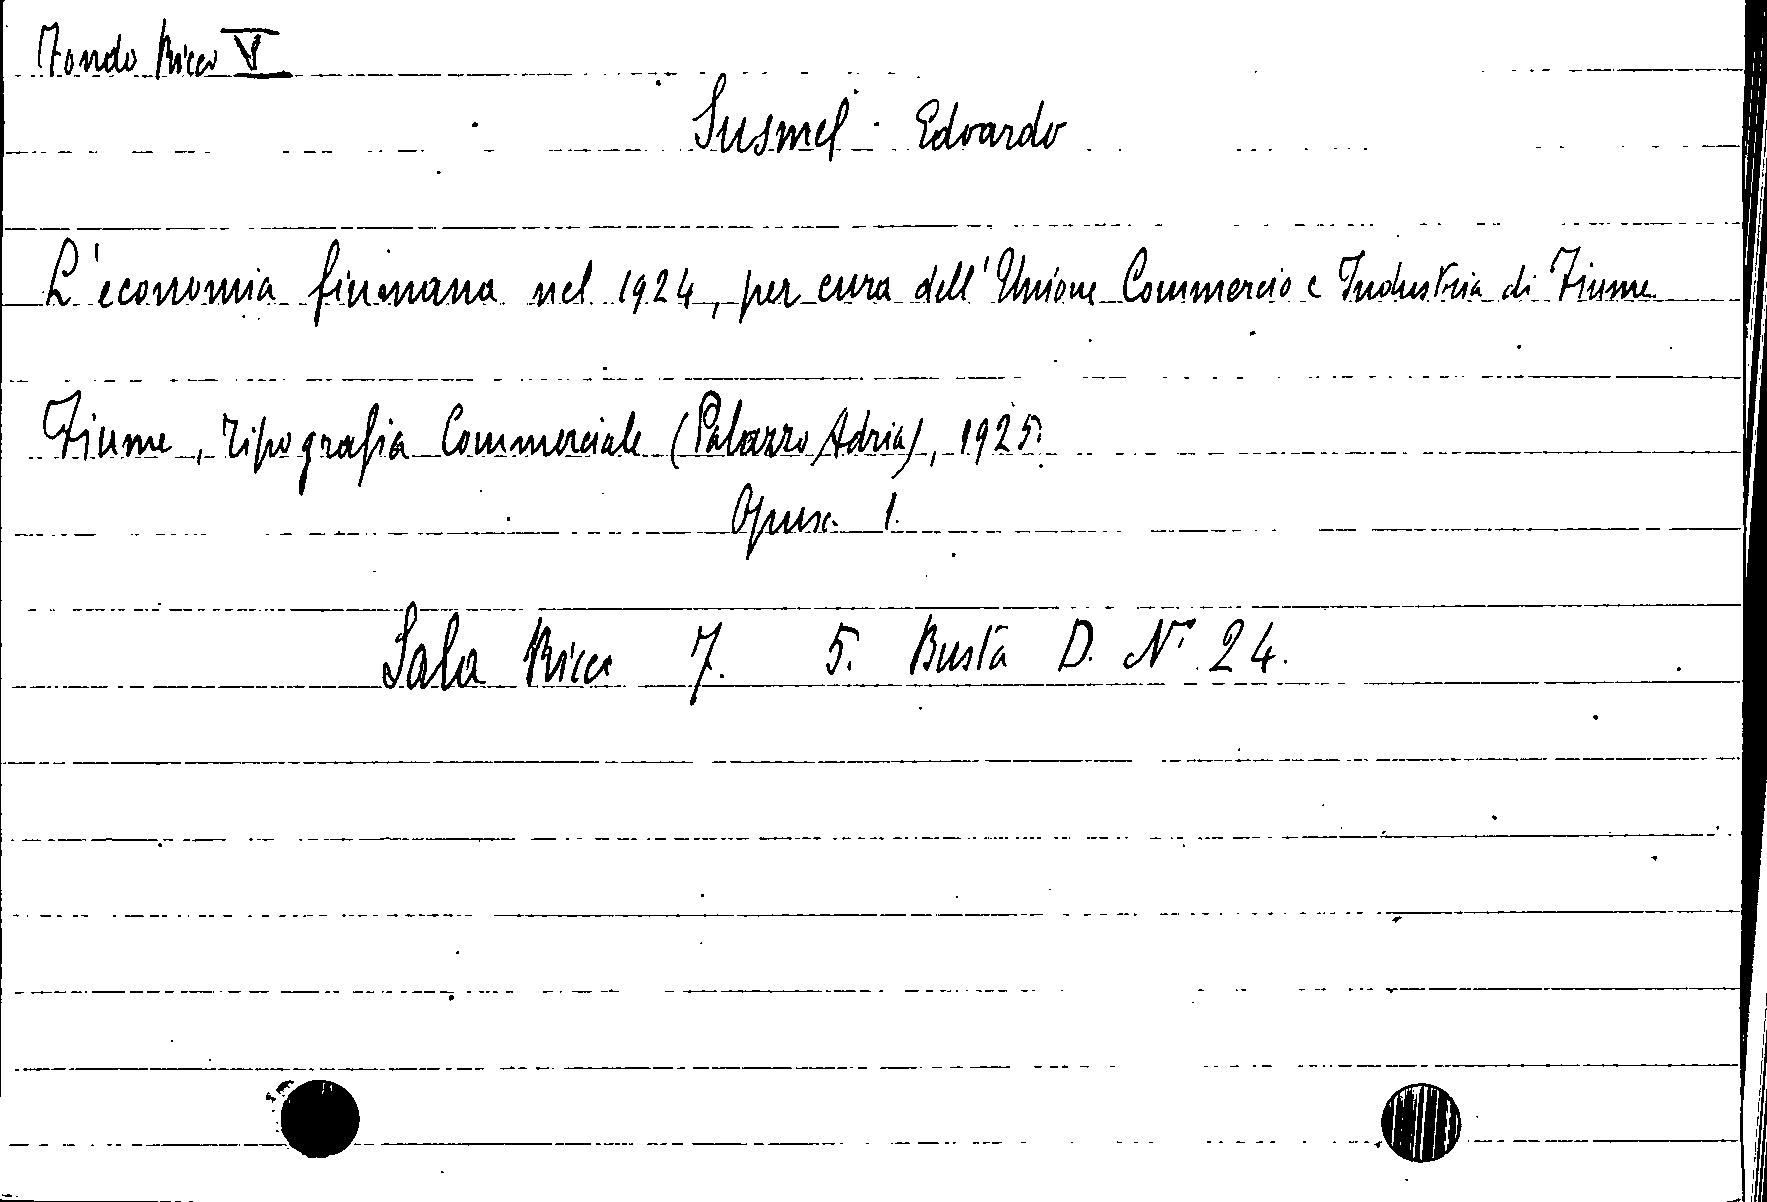 Fondo Ricci V
Susmel Edoardo
L'economia fiumana nel 1924, per cura dell'Unione Commercio e Industria di Fiume
Fiume, Tipografia Commerciale (Palazzo Adria), 1925.
Opusc. 1.
Sala Ricci 7. 5. Busta D. N° 24.